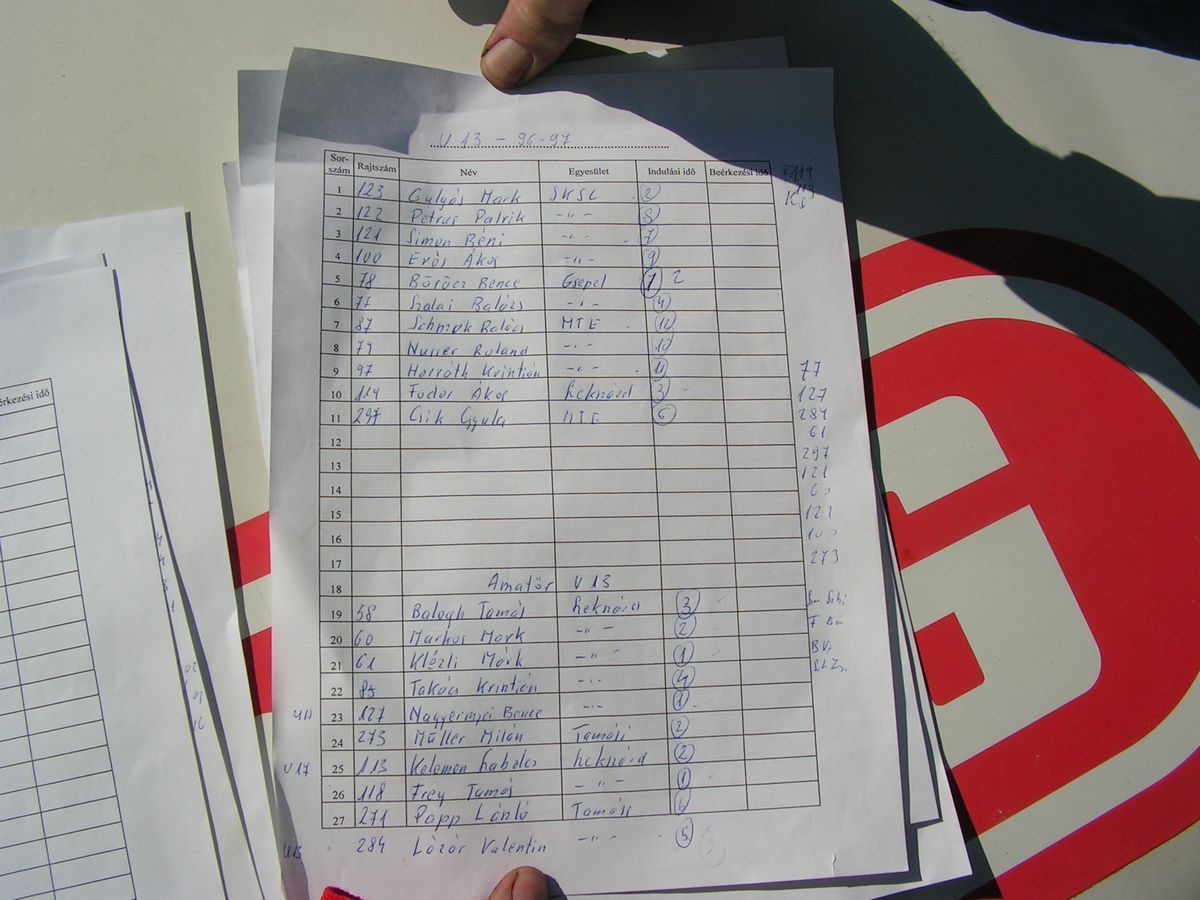 U 13 - 96-97
Sor-szám Rajtszám Név Egyesület Indulási idő Beérkezési idő
1 123 Gulyás Mark SKSC 2
2 122 Petrus Patrik -"- 8
3 121 Simon Béni -"- 7
4 100 Erős Ákos -"- 9
5 78 Böröcz Bence Csepel 1 2
6 77 Szalai Balázs -"- 4
7 87 Balázs MTE 12
8 79 Nusser Roland -"- 10
9 97 Horváth Krintián -"- 11
10 114 Fodor Ákos 3
11 297 Csik Gyula MTE 6
12
13
14
15
16
17
18 Amatőr U 13
19 58 Balogh Tamás 3
20 60 Markos Mark -"- 2
21 61 Klézli Márk -"- 1
22 85 Takács Krintián -"- 4
U13 23 127 Bence -"- 1
24 273 Müller Milán Tamási 2
U17 25 113 Kelemen 2
26 118 Frey Tamás -"- 1
27 271 Papp Tamási 6
U13 284 Lázár Valentin -"- 5
77
127
284
61
297
121
60
122
100
273
érkezési idő